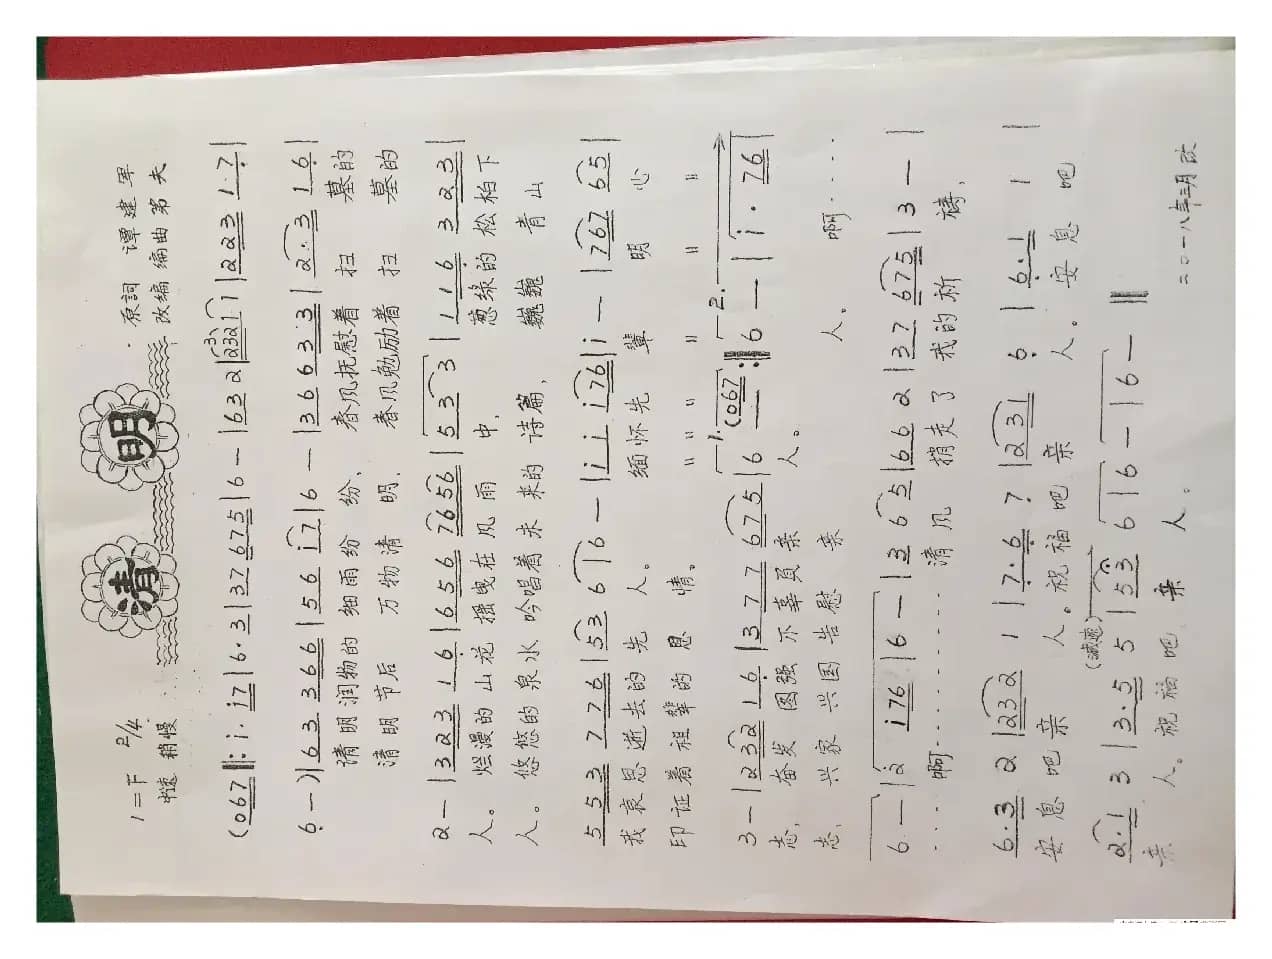 清明
1=F 2/4
中速 稍慢
原詞 谭建军
改编 编曲 第夫
(067 ‖: i· i7 | 6·3 | 37 675 | 6 — | 632 | 232i i | 223 1·7 |
6 —) | 63 366 | 56 i7 | 6 — | 36 63·3 | 2·3 16 |
清明润物的 细雨纷 纷, 春风抚慰着 扫 墓的
清明节后 万物清 明, 春风勉励着 扫 墓的
2 — | 323 16 | 656 7656 | 53 3 | 116 323 |
人。 烂漫的 山花 摇曳在 风雨 中, 葱绿的 松柏下
人。 悠悠的 泉水 吟唱着 未来的 诗篇, 巍巍 青山
553 776 | 53 6 | 6 — | i i i76 | i — | 767 65 |
我哀思 逝去的 先 人。 缅怀先 輩 明 心
印证着 祖辈的 恩 情。 〃 〃 〃 〃 〃 〃
3 — | 232 16 | 377 675 | 1. 6 (067 :‖ 2. 6 — | i· 76 |
志, 奋发 图强 不辜負 亲 人。 人。 啊·····
志, 兴家 兴国 告慰 亲
6 — | 2 i76 | 6 — | 36 5 | 66 2 | 37 675 | 3 — |
····啊··········清风 捎走了 我的祈 祷,
6·3 2 | 232 1 | 7·6 7 | 231 6 | 6·1 1 |
安息 吧亲 人。祝福吧 亲 人。安息 吧
2·1 3 | 3·5 5 | (减速) 53 6 | 6 — | 6 — ‖
亲 人。祝福吧, 亲 人。
二0一八年三月改